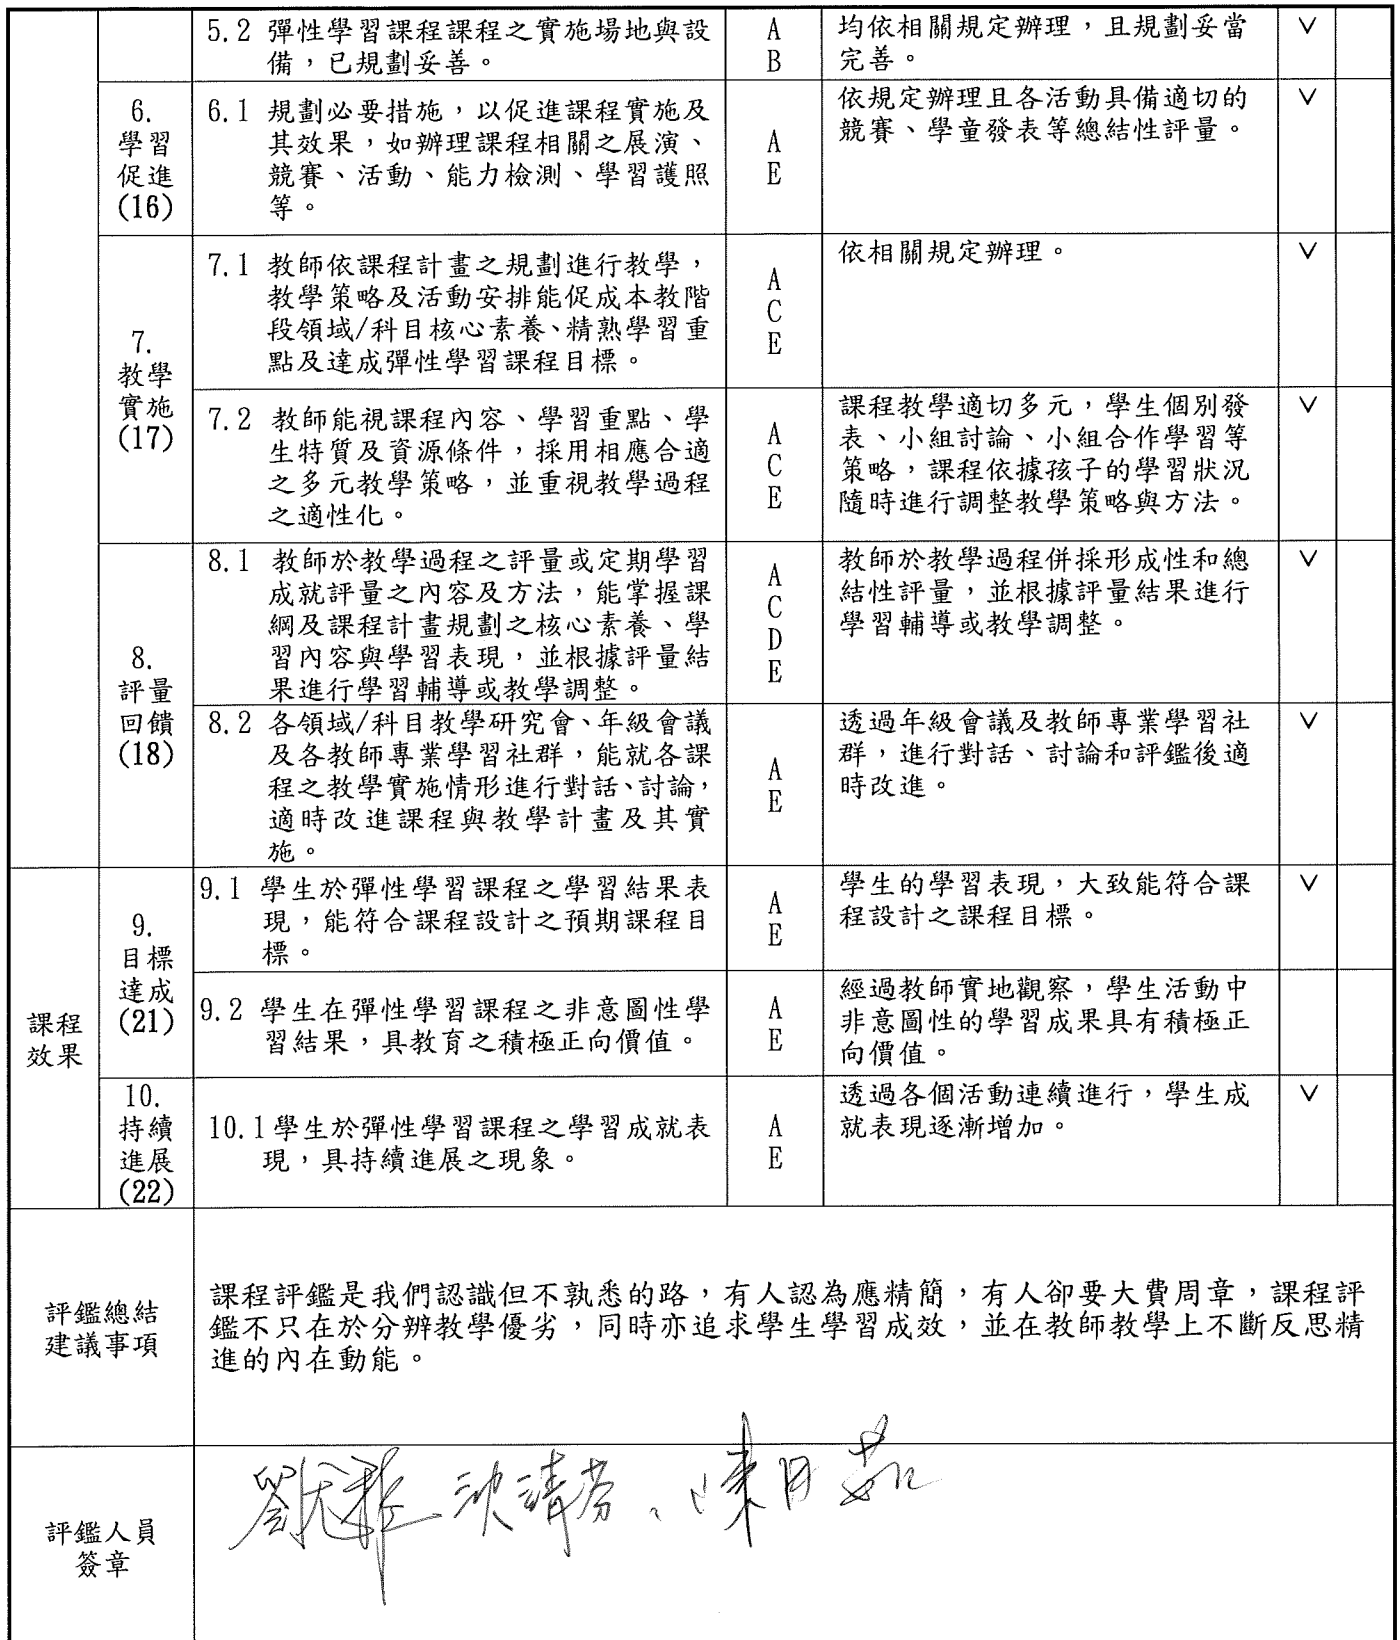 5.2 彈性學習課程課程之實施場地與設
備，已規劃妥善。
A
B
均依相關規定辦理，且規劃妥當
完善。
V
6.
學習
促進
(16)
6.1 規劃必要措施，以促進課程實施及
其效果，如辦理課程相關之展演、
競賽、活動、能力檢測、學習護照
等。
A
E
依規定辦理且各活動具備適切的
競賽、學童發表等總結性評量。
V
7.
教學
實施
(17)
7.1 教師依課程計畫之規劃進行教學，
教學策略及活動安排能促成本教階
段領域/科目核心素養、精熟學習重
點及達成彈性學習課程目標。
A
C
E
依相關規定辦理。
V
7.2 教師能視課程內容、學習重點、學
生特質及資源條件，採用相應合適
之多元教學策略，並重視教學過程
之適性化。
A
C
E
課程教學適切多元，學生個別發
表、小組討論、小組合作學習等
策略，課程依據孩子的學習狀況
隨時進行調整教學策略與方法。
V
8.
評量
回饋
(18)
8.1 教師於教學過程之評量或定期學習
成就評量之內容及方法，能掌握課
綱及課程計畫規劃之核心素養、學
習內容與學習表現，並根據評量結
果進行學習輔導或教學調整。
A
C
D
E
教師於教學過程併採形成性和總
結性評量，並根據評量結果進行
學習輔導或教學調整。
V
8.2 各領域/科目教學研究會、年級會議
及各教師專業學習社群，能就各課
程之教學實施情形進行對話、討論，
適時改進課程與教學計畫及其實
施。
A
E
透過年級會議及教師專業學習社
群，進行對話、討論和評鑑後適
時改進。
V
課程
效果
9.
目標
達成
(21)
9.1 學生於彈性學習課程之學習結果表
現，能符合課程設計之預期課程目
標。
A
E
學生的學習表現，大致能符合課
程設計之課程目標。
V
9.2 學生在彈性學習課程之非意圖性學
習結果，具教育之積極正向價值。
A
E
經過教師實地觀察，學生活動中
非意圖性的學習成果具有積極正
向價值。
10.
持續
進展
(22)
10.1學生於彈性學習課程之學習成就表
現，具持續進展之現象。
A
E
透過各個活動連續進行，學生成
就表現逐漸增加。
V
評鑑總結
建議事項
課程評鑑是我們認識但不孰悉的路，有人認為應精簡，有人卻要大費周章，課程評
鑑不只在於分辨教學優劣，同時亦追求學生學習成效，並在教師教學上不斷反思精
進的內在動能。
評鑑人員
簽章